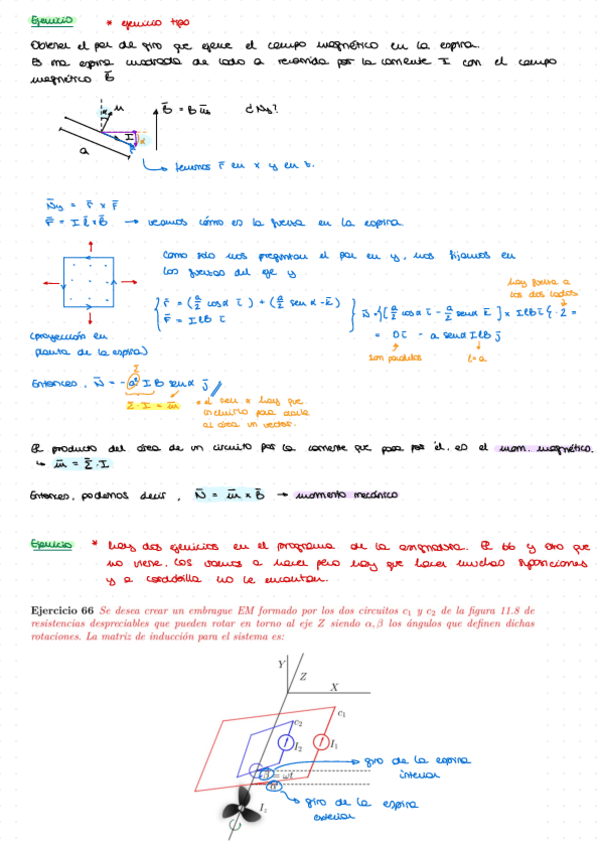 Ejercicio * ejercicio tipo
Obtener el par de giro que ejerce el campo magnético en la espira.
Es una espira cuadrada de lado a recorrida por la corriente I con el campo
magnético B̄
α
n
B̄ = B ū
¿Ny?
I
α
a
r̄
tenemos r̄ en x y en
N̄y = r̄ x F̄
F̄ = I l̄ x B̄ → veamos cómo es la fuerza en la espira
Como solo nos preguntan el par en y, nos fijamos en
las fuerzas del eje y
hay fuerza a
los dos lados
r̄ = (a/2 cosα ī) + (a/2 senα -k̄)
F̄ = I l B ī
N̄ = {[a/2 cosα ī - a/2 senα k̄] x I l B ī} · 2 =
= 0ī - a senα I l B j̄
son paralelos
l=a
(proyección en
planta de la espira)
Entonces, N̄ = - a² I B senα j̄
Σ
Σ · I = m̄
* el sen α hay que
incluirlo para darle
al área un vector.
El producto del área de un circuito por la corriente que pasa por él, es el mom. magnético.
↳ m̄ = Σ̄ · I
Entonces, podemos decir, N̄ = m̄ x B̄ → momento mecánico
Ejercicio * hay dos ejercicios en el programa de la asignatura. El 66 y otro que
no viene. Los vamos a hacer pero hay que hacer muchas suposiciones
y a no le encantan.
Ejercicio 66 Se desea crear un embrague EM formado por los dos circuitos c₁ y c₂ de la figura 11.8 de
resistencias despreciables que pueden rotar en torno al eje Z siendo α, β los ángulos que definen dichas
rotaciones. La matriz de inducción para el sistema es:
Y
Z
X
c₁
c₂
I₂
I₁
β = ωt
giro de la espira
interior
α
I₂
giro de la espira
exterior